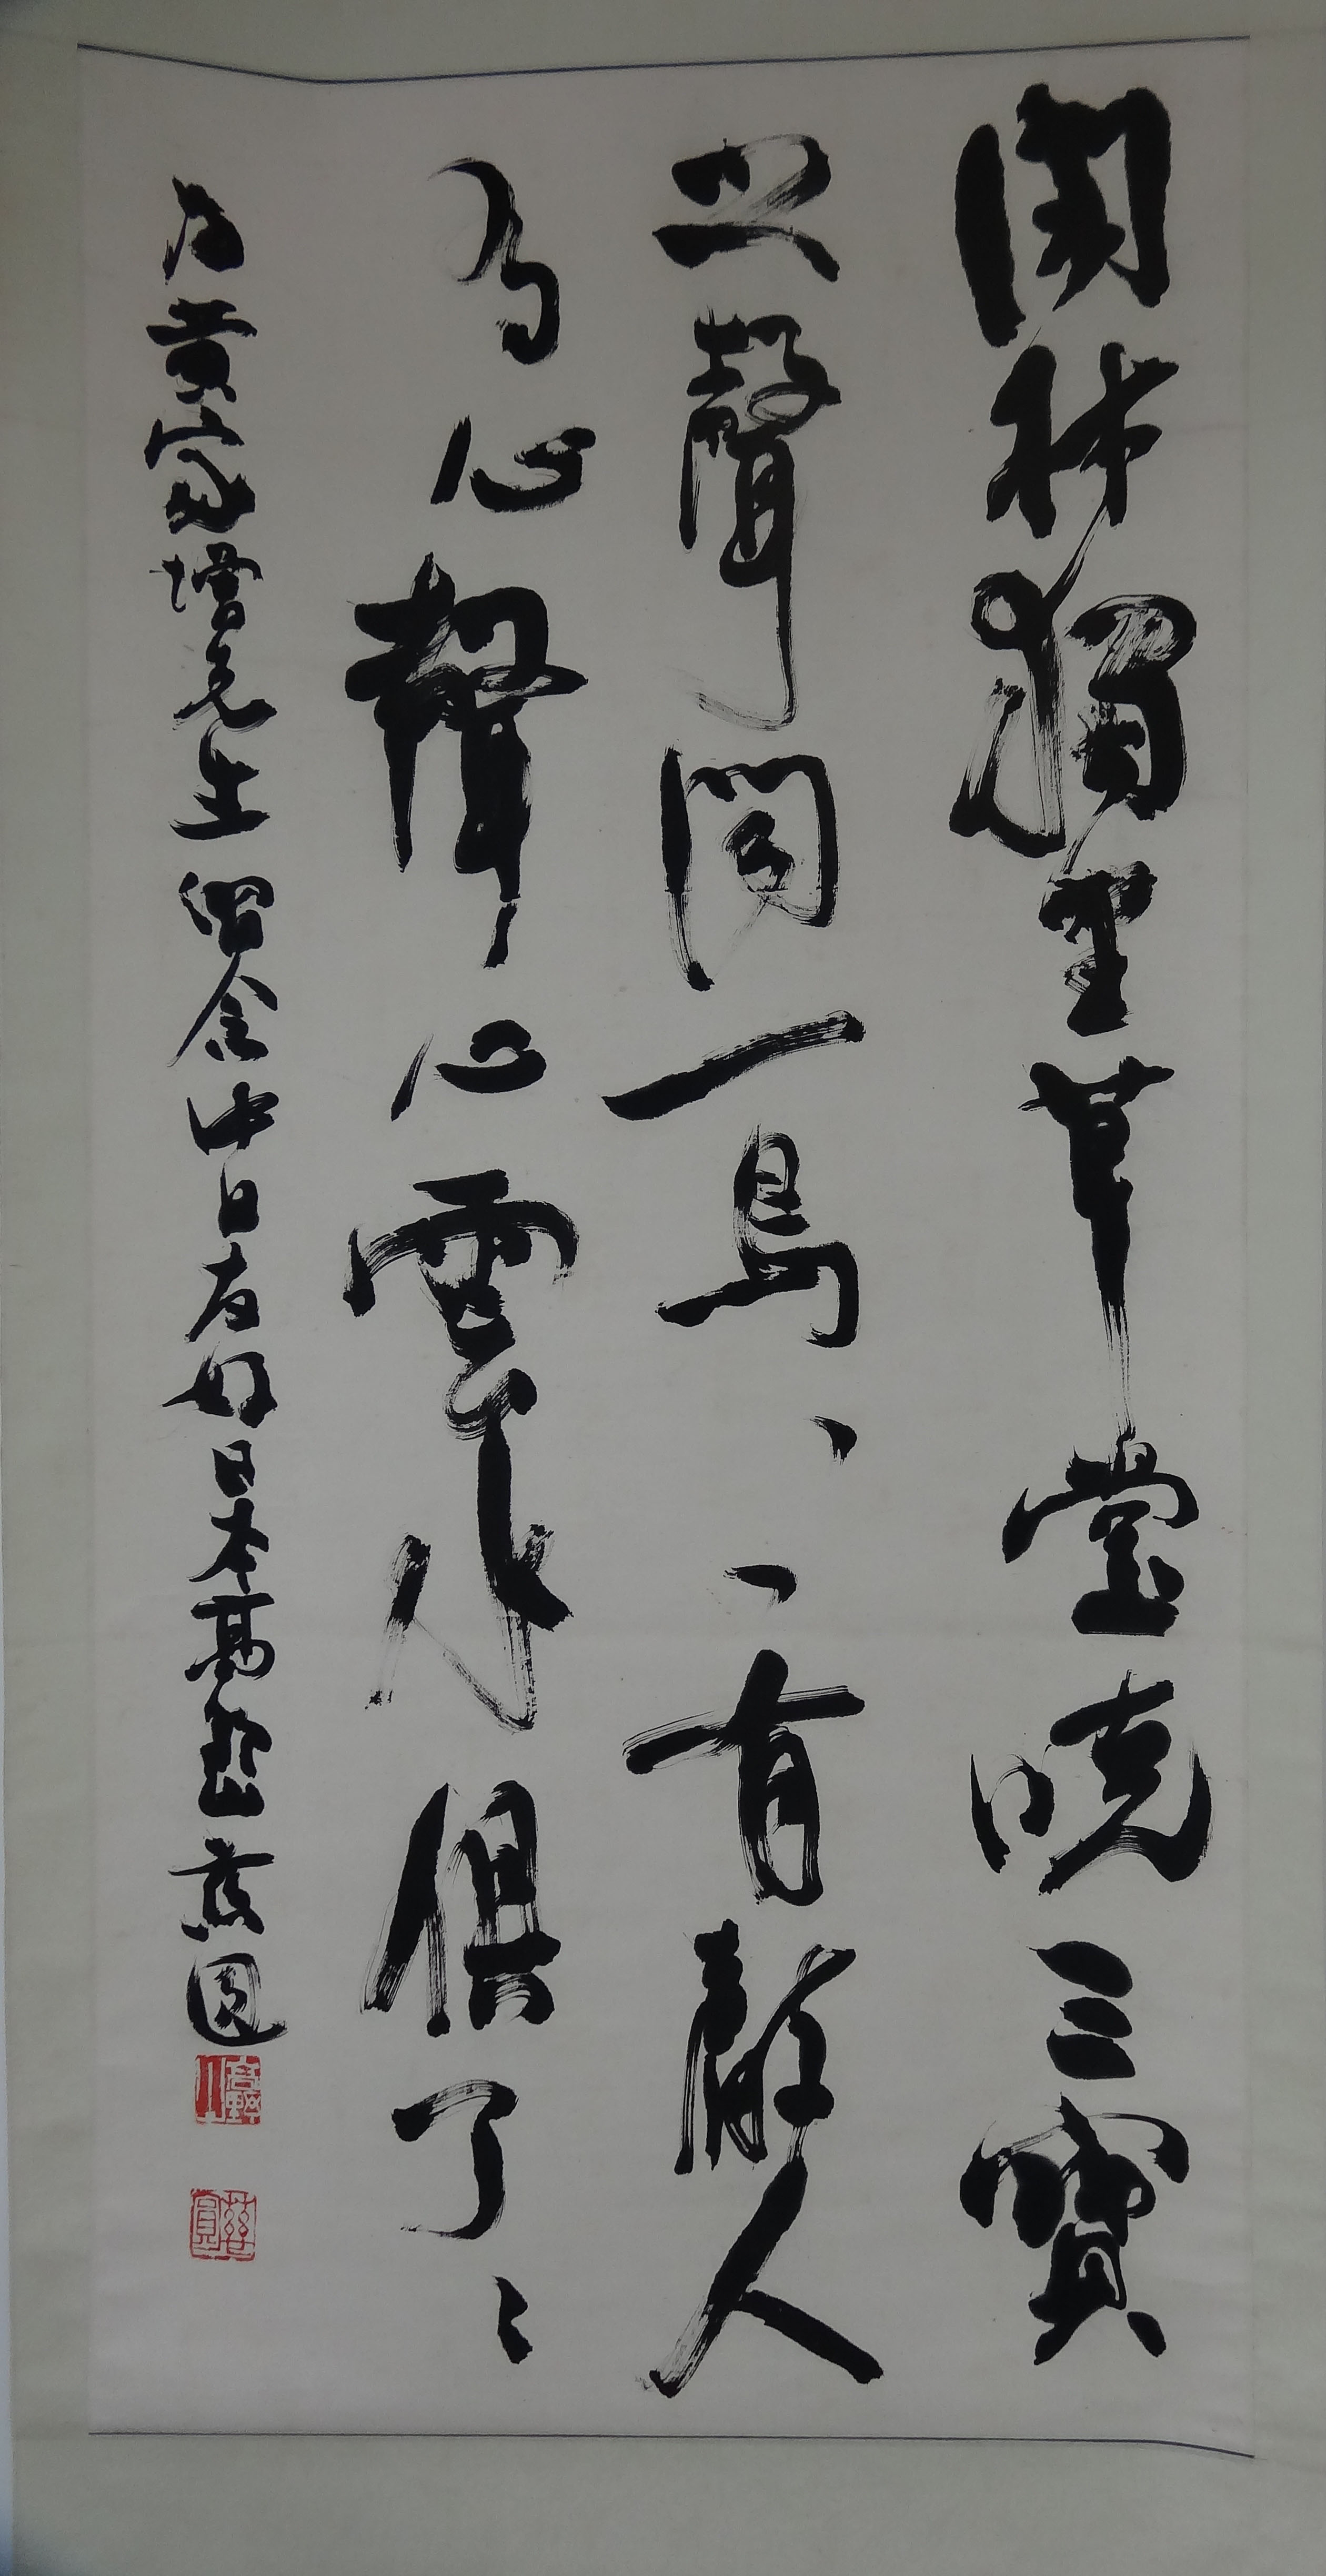 閑林獨坐草堂曉三寶
之聲聞一鳥一鳥有聲人
有心聲心雲水俱了了
為黄家增先生留念中日友好日本高野山慈圓
高野山
慈圓